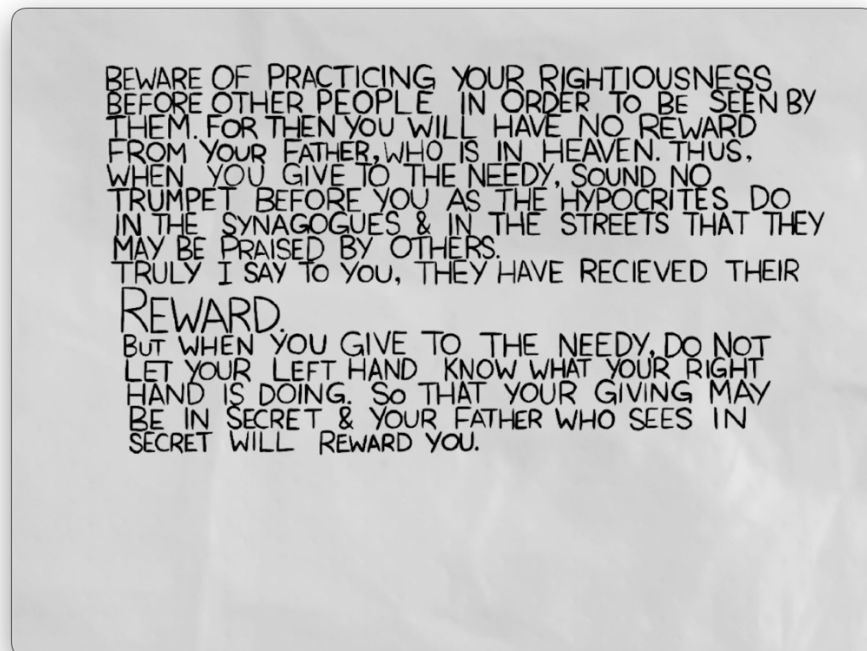 BEWARE OF PRACTICING YOUR RIGHTIOUSNESS
BEFORE OTHER PEOPLE IN ORDER TO BE SEEN BY
THEM. FOR THEN YOU WILL HAVE NO REWARD
FROM YOUR FATHER, WHO IS IN HEAVEN. THUS,
WHEN YOU GIVE TO THE NEEDY, SOUND NO
TRUMPET BEFORE YOU AS THE HYPOCRITES DO
IN THE SYNAGOGUES & IN THE STREETS THAT THEY
MAY BE PRAISED BY OTHERS.
TRULY I SAY TO YOU, THEY HAVE RECIEVED THEIR
REWARD.
BUT WHEN YOU GIVE TO THE NEEDY, DO NOT
LET YOUR LEFT HAND KNOW WHAT YOUR RIGHT
HAND IS DOING. SO THAT YOUR GIVING MAY
BE IN SECRET & YOUR FATHER WHO SEES IN
SECRET WILL REWARD YOU.